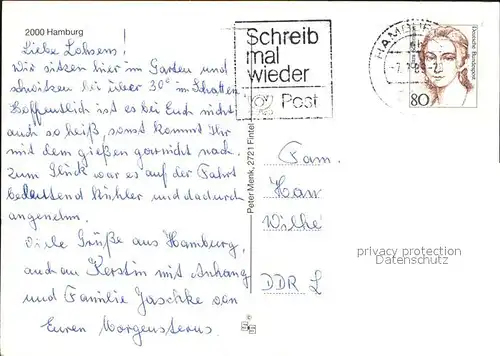 2000 Hamburg
Liebe Lohsens!
Wir sitzen hier im Garten und
schwitzen bei über 30° im Schatten.
Hoffentlich ist es bei Euch nicht
auch so heiß, sonst kommt Ihr
mit dem gießen garnicht nach.
Zum Glück war es auf der Fahrt
bedeutend kühler und dadurch
angenehm.
Viele Grüße aus Hamburg,
auch an Kerstin mit Anhang
und Familie Jaschke von
Euren Morgensterns.
Peter Menk, 2721 Fintel
Schreib
mal
wieder
Post
HAMBURG
80
Fam.
Han
Wilhe
DDR
privacy protection
Datenschutz